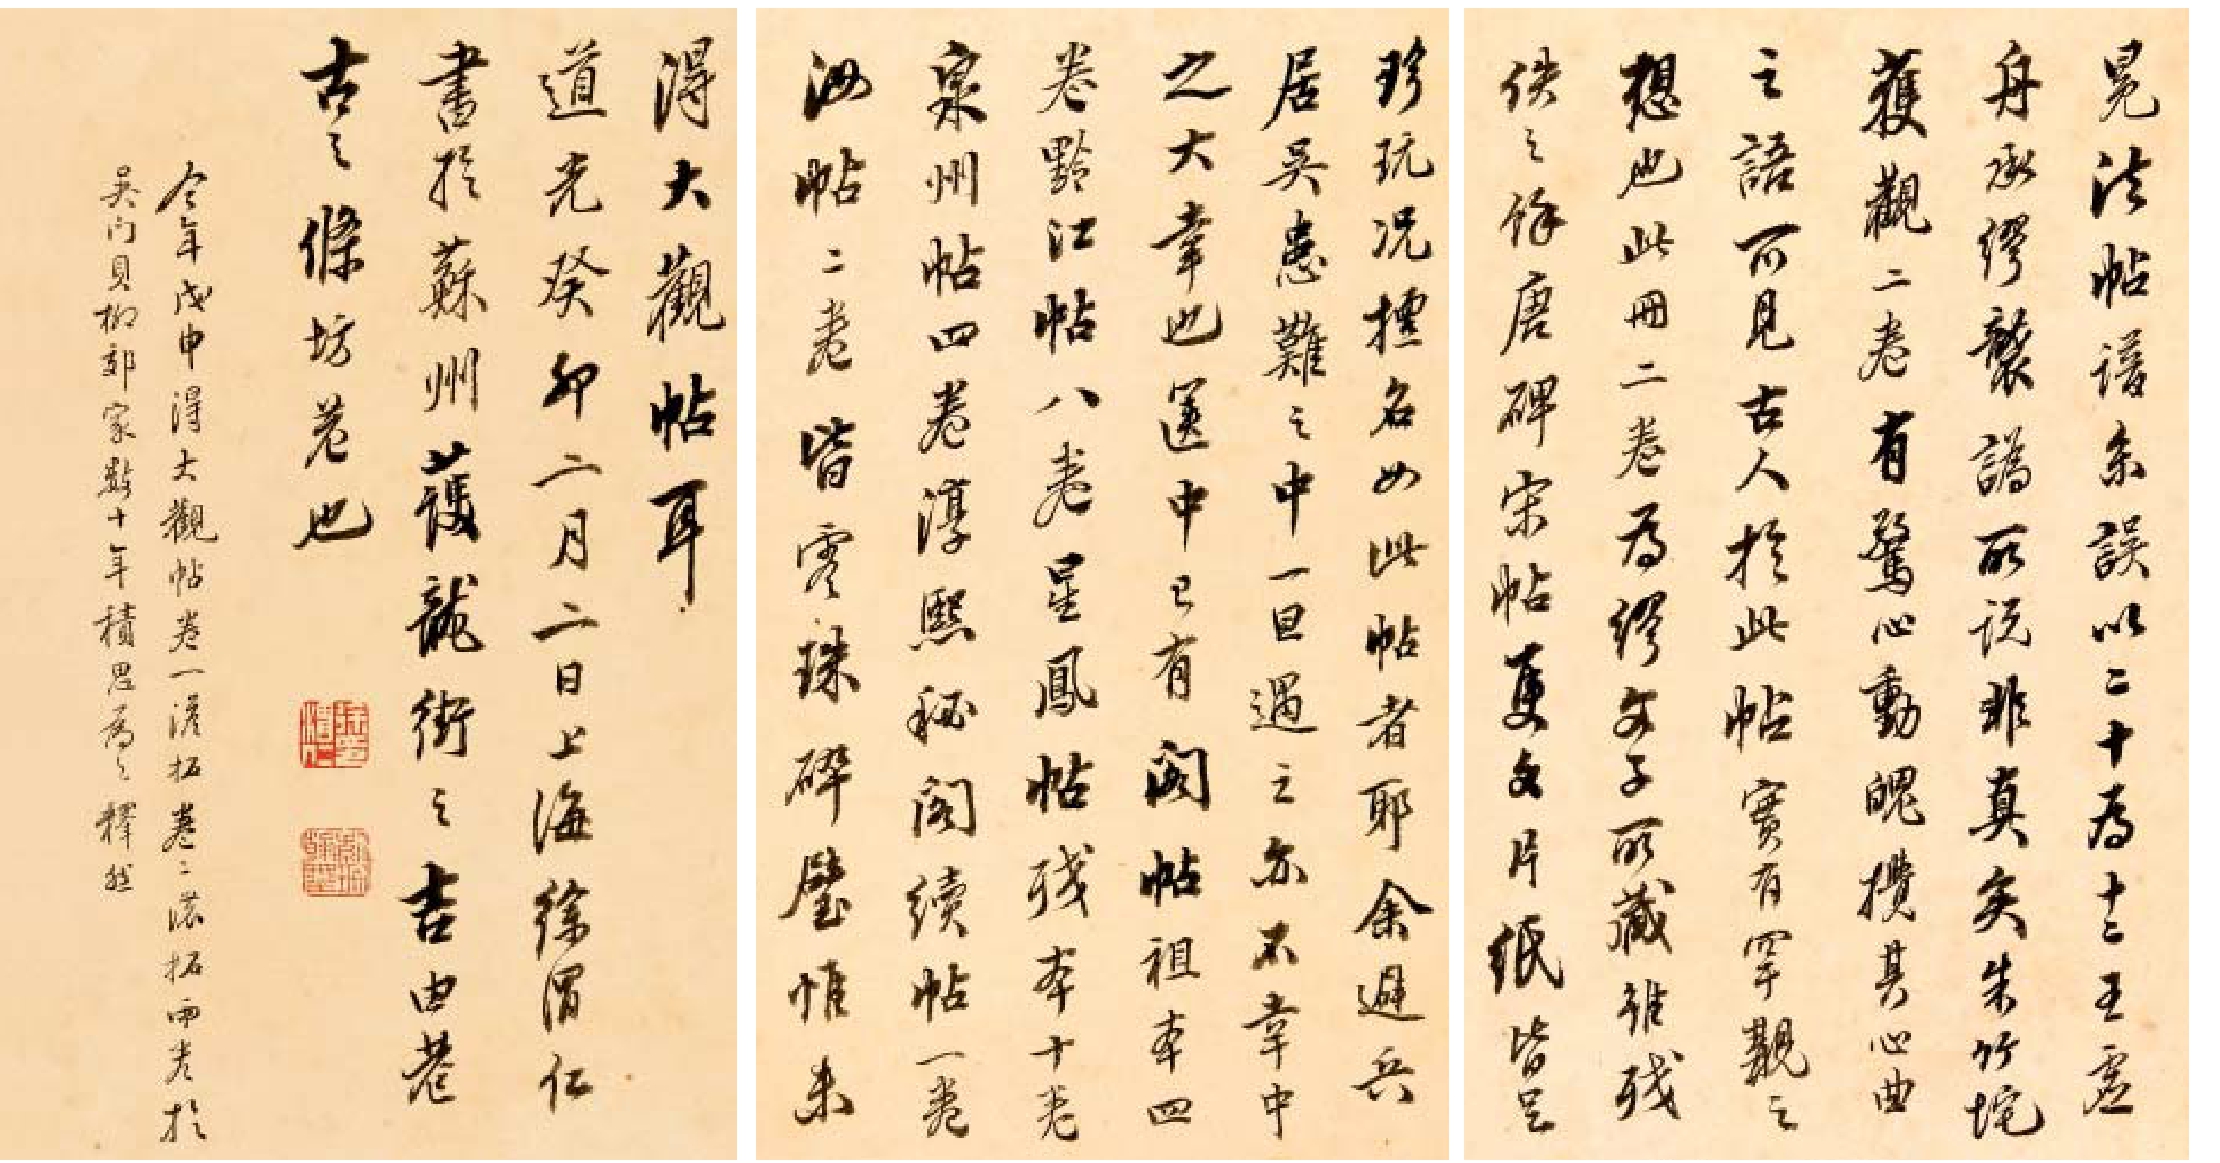 冕法帖譜系誤以二十為十二王虛
舟承繆襲譌所說非真矣朱竹垞
獲觀二卷有驚心動魄攬其心曲
之語可見古人於此帖實有罕觀之
想也此冊二卷為繆文子所藏雖殘
佚之餘唐碑宋帖隻字片紙皆足
珍玩况煊名如此帖者耶余避兵
居吳患難之中一旦遇之亦不幸中
之大幸也篋中已有閣帖祖本四
卷黔江帖八卷星鳳帖殘本十卷
泉州帖四卷淳熙秘閣續帖一卷
汝帖二卷皆零珠碎璧惟未
得大觀帖耳
道光癸卯二月二日上海徐渭仁
書於蘇州護龍街之吉由巷
古之條坊巷也
今年戊申得大觀帖卷一淡拓卷二濃拓兩卷於
吳門貝柳邨家數十年積思為之釋然